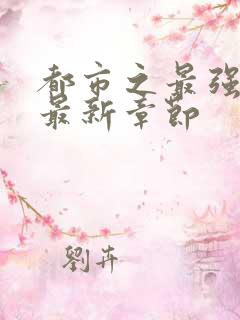 都市之最强
最新章節
劉卉